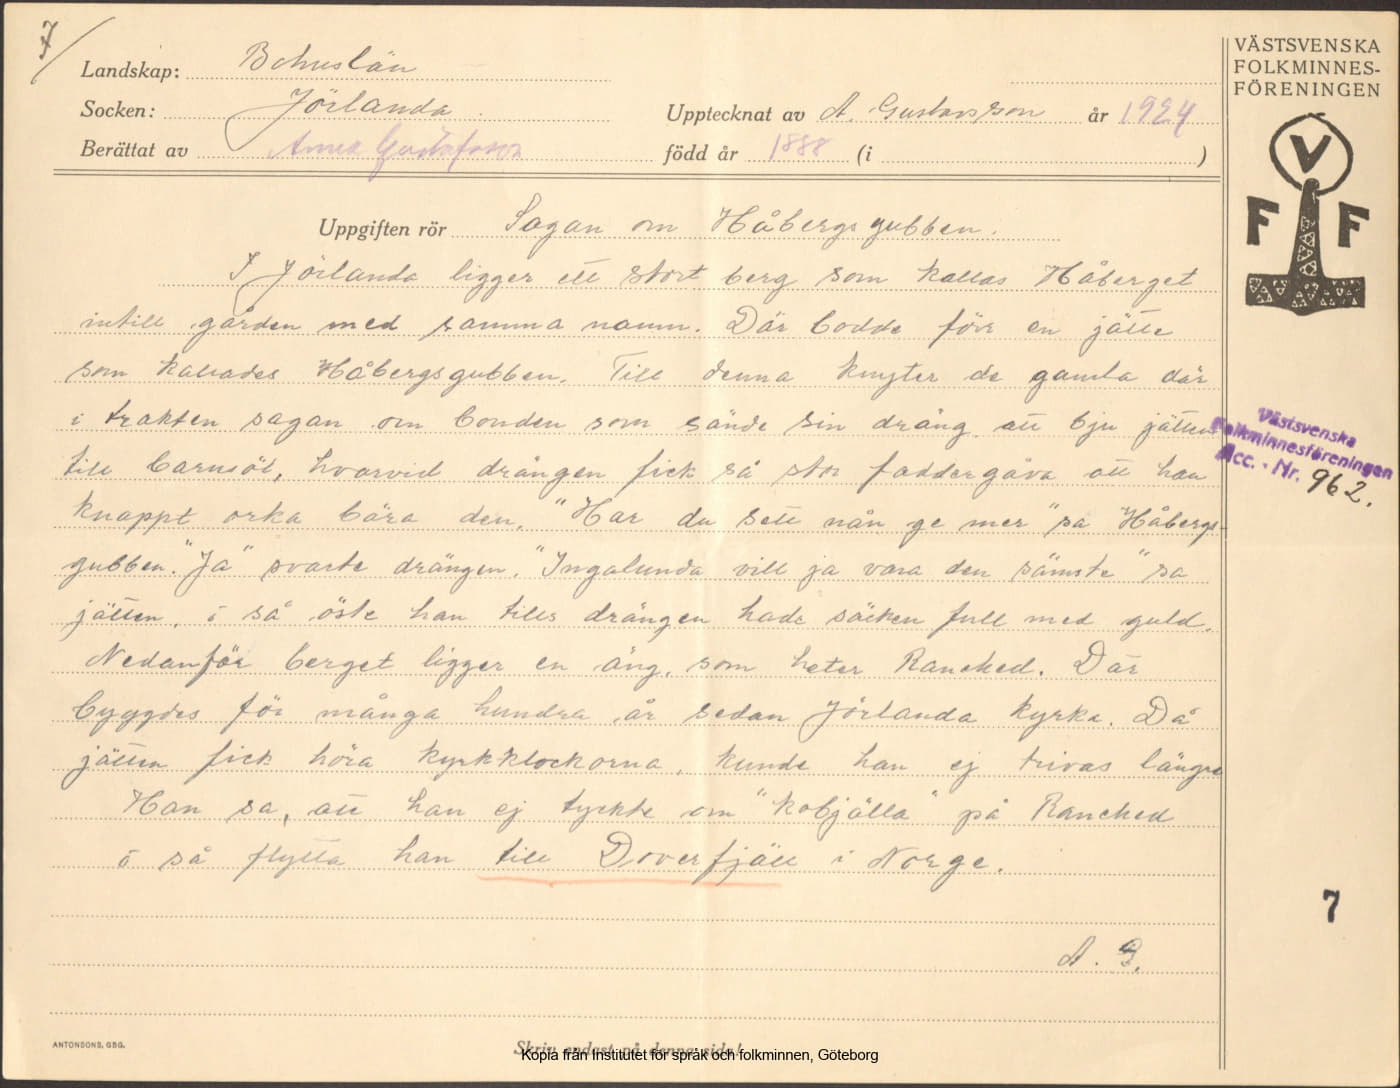 7
Landskap: Bohuslän
Socken: Jörlanda
Upptecknat av A. Gustavsson år 1924
Berättat av Anna Gustafsson född år 1888 (i )
VÄSTSVENSKA
FOLKMINNES-
FÖRENINGEN
V
F F
Uppgiften rör Sagan om Håbergsgubben.
I Jörlanda ligger ett stort berg som kallas Håberget
intill gården med samma namn. Där bodde förr en jätte
som kallades Håbergsgubben. Till denna knyter de gamla där
i trakten sagan om bonden som sände sin dräng att bju jätten
till barnsöl, hvarvid drängen fick så stor faddergåva att han
knappt orka bära den. "Har du sett nån ge mer" sa Håbergs-
gubben. "Ja" svarte drängen. "Ingalunda vill ja vara den sämste" sa
jätten, ó så öste han tills drängen hade säcken full med guld.
Nedanför berget ligger en äng, som heter Ranehed. Där
byggdes för många hundra år sedan Jörlanda kyrka. Då
jätten fick höra kyrkklockorna, kunde han ej trivas längre
Han sa, att han ej tyckte om "kobjälla" på Ranehed
ó så flytta han till Doverfjäll i Norge.
A. G.
Västsvenska
Folkminnesföreningen
Acc. - Nr. 962.
7
ANTONSONS, GBG.
Skriv endast på denna sida!
Kopia från Institutet för språk och folkminnen, Göteborg